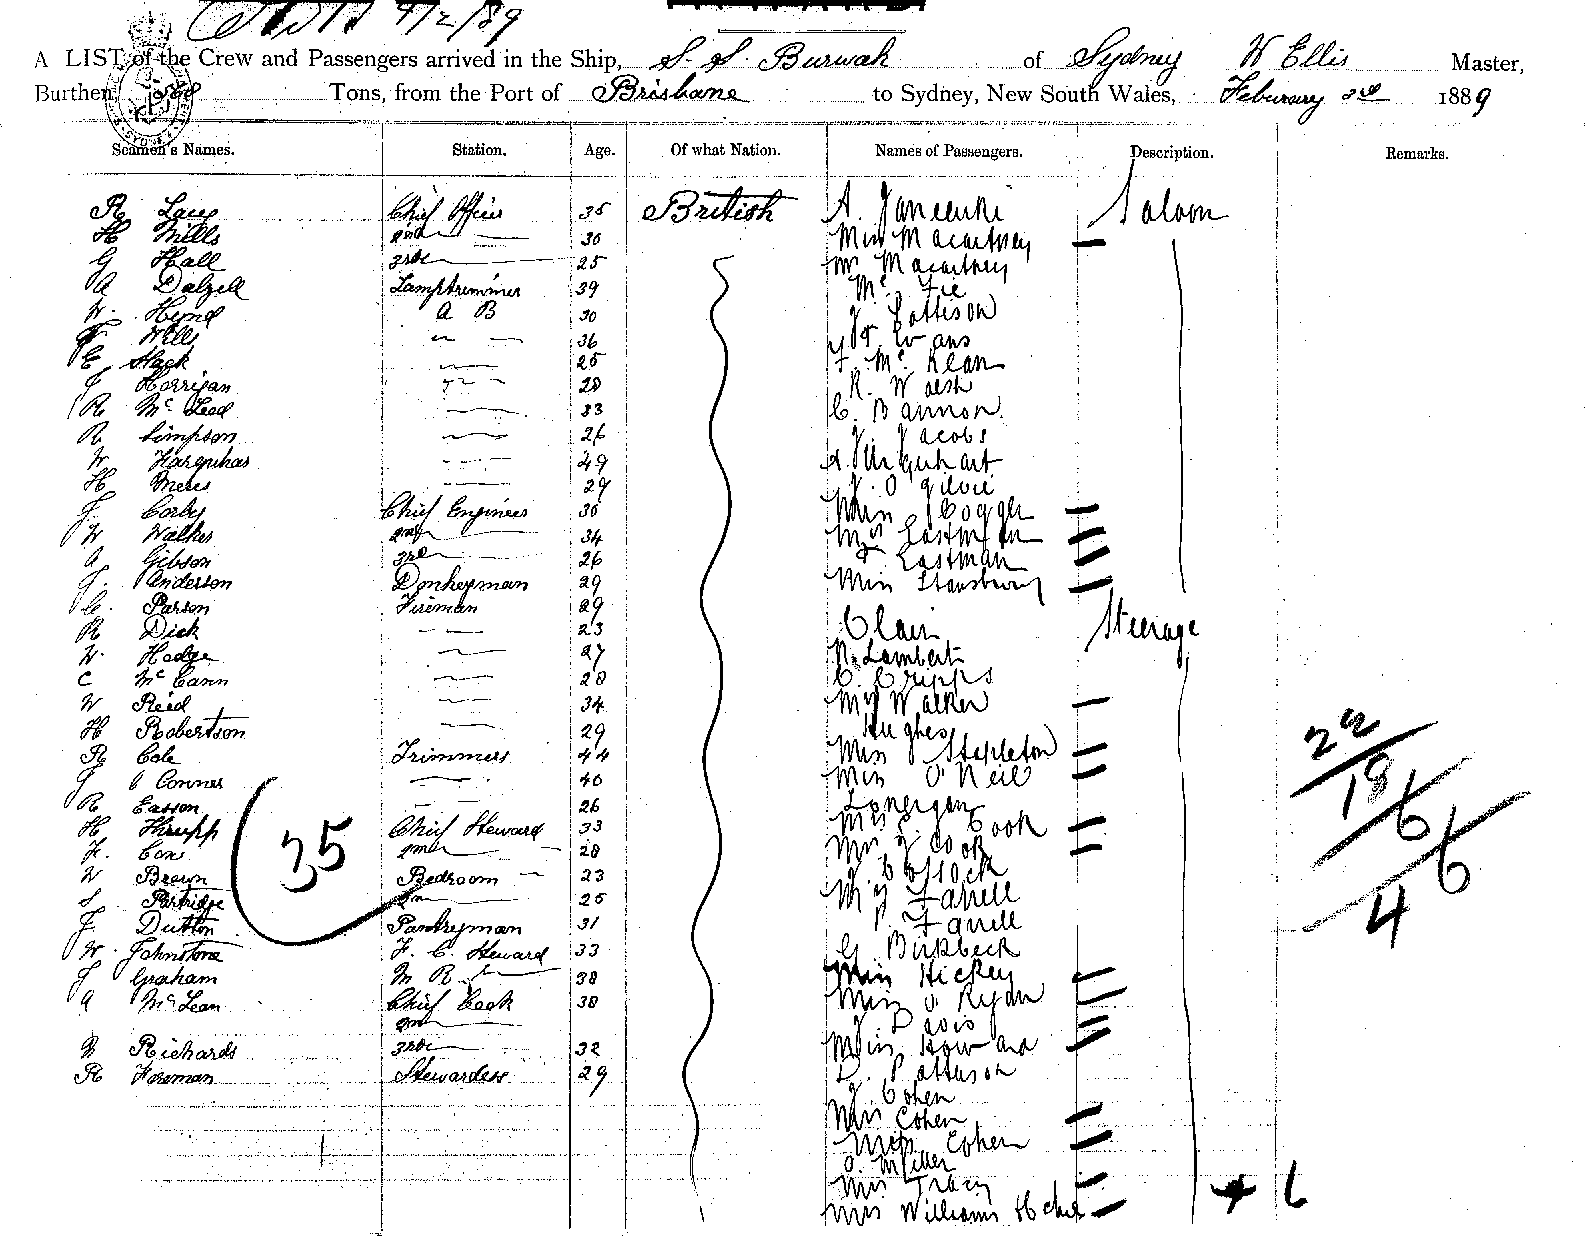 4/2/89
A LIST of the Crew and Passengers arrived in the Ship, S. S. Burwah of Sydney W Ellis Master,
Burthen 568 Tons, from the Port of Brisbane to Sydney, New South Wales, Feburary 3rd 1889
Seamen's Names. Station. Age. Of what Nation. Names of Passengers. Description. Remarks.
R Lacey Chief Officer 35 British A. Saloon
H Mills 2nd 30 Miss Macartney
G Hall 3rd 25 Mr Macartney
A Dalzell Lamptrimmer 39 Mc Fie
W. Hynd A B 30 J Pattison
F Wells 36 Evans
E Slack 25 F. McKean
J Horrigan 28 R. Walsh
R McLeod 33 C. Bannon
R Simpson 26 J Jacobs
W Farquhar 49 A. Urquhart
H Meres 29 J. Ogilvie
J. Corby Chief Engineer 36 Miss Coggle
W Walker 2nd 34 Mrs Eastman
A Gibson 3rd 26 Eastman
J. Anderson Donkeyman 29 Miss Stansbury
C. Parson Fireman 29
R Dick 23 Clair Steerage
W. Hodge 27 N. Lambert
C McCann 28 C. Cripps
W Reid 34 Mrs Walker
H Robertson 29 Hughes
R Cole Trimmers 44 Miss Stapleton
J O Connor 40 Miss O'Neil
R Easson 26 Lonergan
H Thrupp Chief Steward 33 Mrs Cook
F. Cons 2nd 28 Mrs J Cook
W Brown Bedroom 23
S Partridge 25 Farrell
J. Dutton Pantryman 31 P. Farrell
W. Johnstone F. C. Steward 33 G Birkbeck
J Graham M R 38 Miss Hickey
A McLean Chief Cook 38 Miss O Ryan
2nd J Davis
Richards 3rd 32 Miss Howard
R Foreman Stewardess 29 D. Patterson
J Cohen
Mrs Cohen
Miss Cohen
O. Miller
Mrs Tracy
Mrs Williams
35
22
18
6
4
6
6